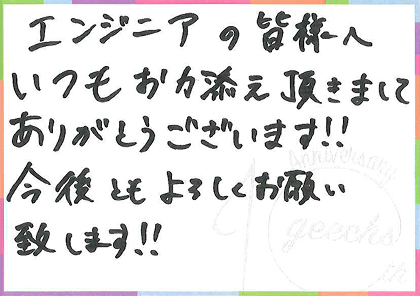 エンジニアの皆様へ
いつもお力添え頂きまして
ありがとうございます!!
今後ともよろしくお願い
致します!!
Anniversary
geechs
th